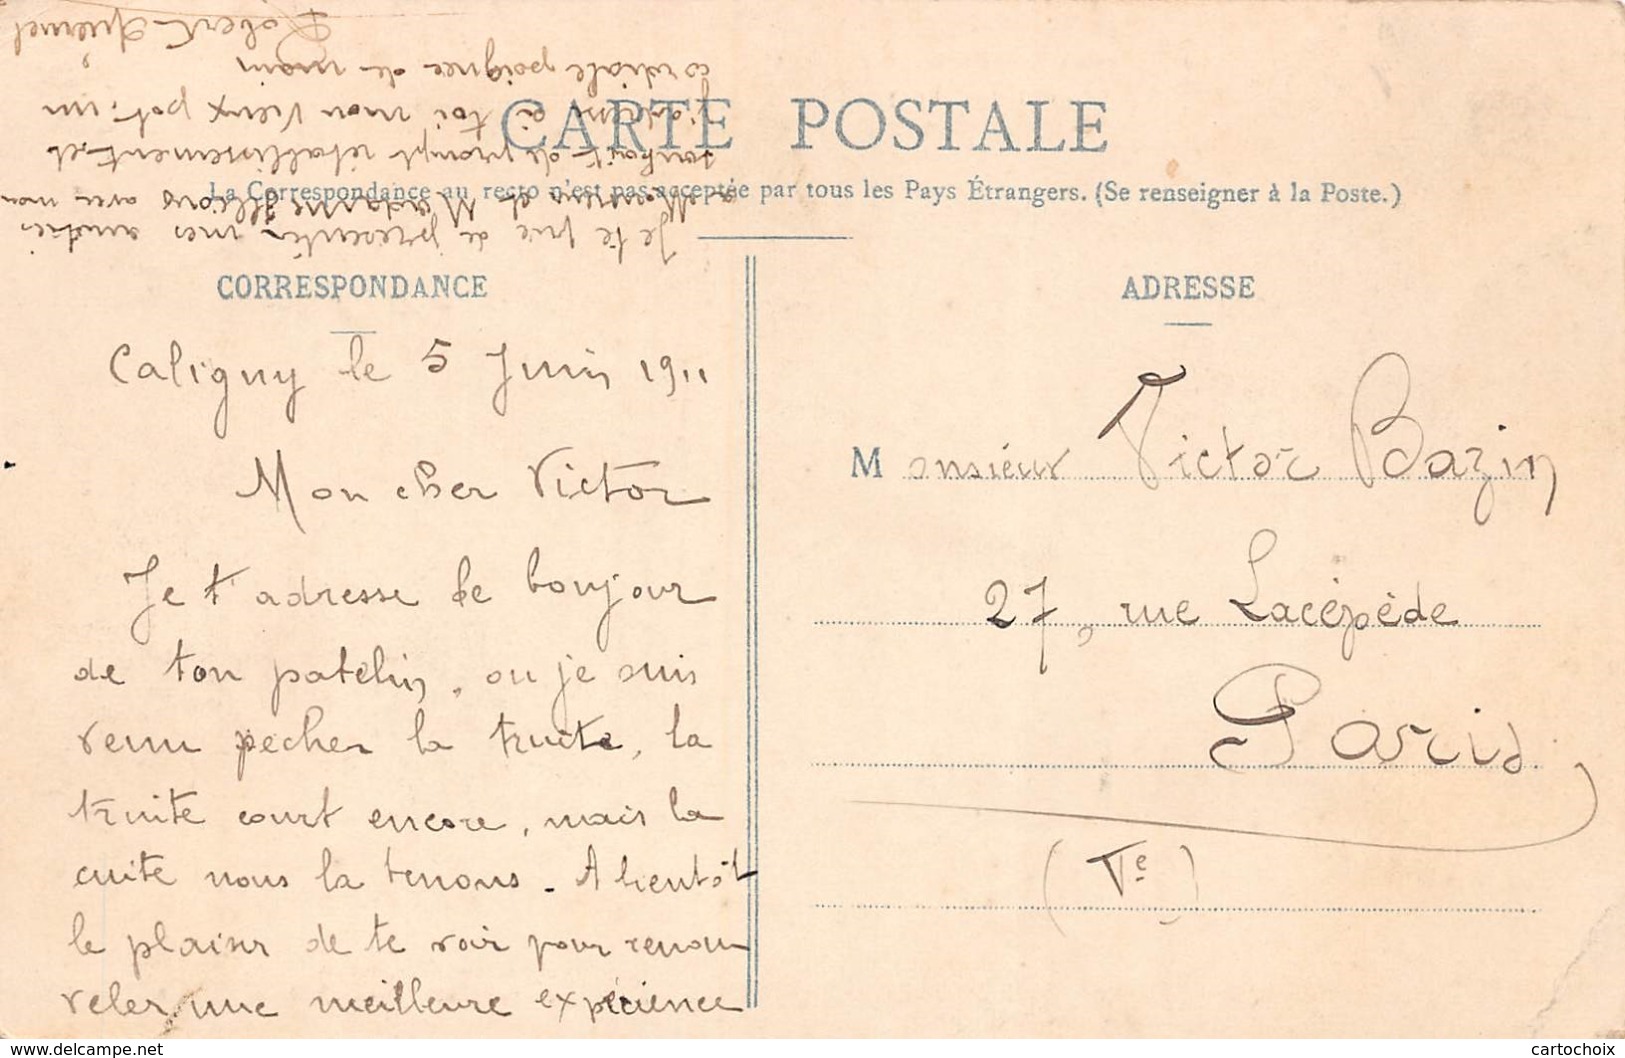 CARTE POSTALE
La Correspondance au recto n'est pas acceptée par tous les Pays Étrangers. (Se renseigner à la Poste.)
CORRESPONDANCE
Caligny le 5 Juin 1911
Mon cher Victor
Je t'adresse le bonjour
de ton patelin, ou je suis
venu pecher la truite, la
truite court encore, mais la
cuite nous la tenons. A bientôt
le plaisir de te voir pour renou
veler une meilleure expérience
Je te prie de présenter mes amitiés
a Monsieur et Madame avec mon
souhait de prompt rétablissement, et
à toi mon vieux pot. un
cordiale poignée de main
Robert
ADRESSE
Monsieur Victor Bazin
27, rue Lacépède
Paris
(Ve)
www.delcampe.net
cartochoix